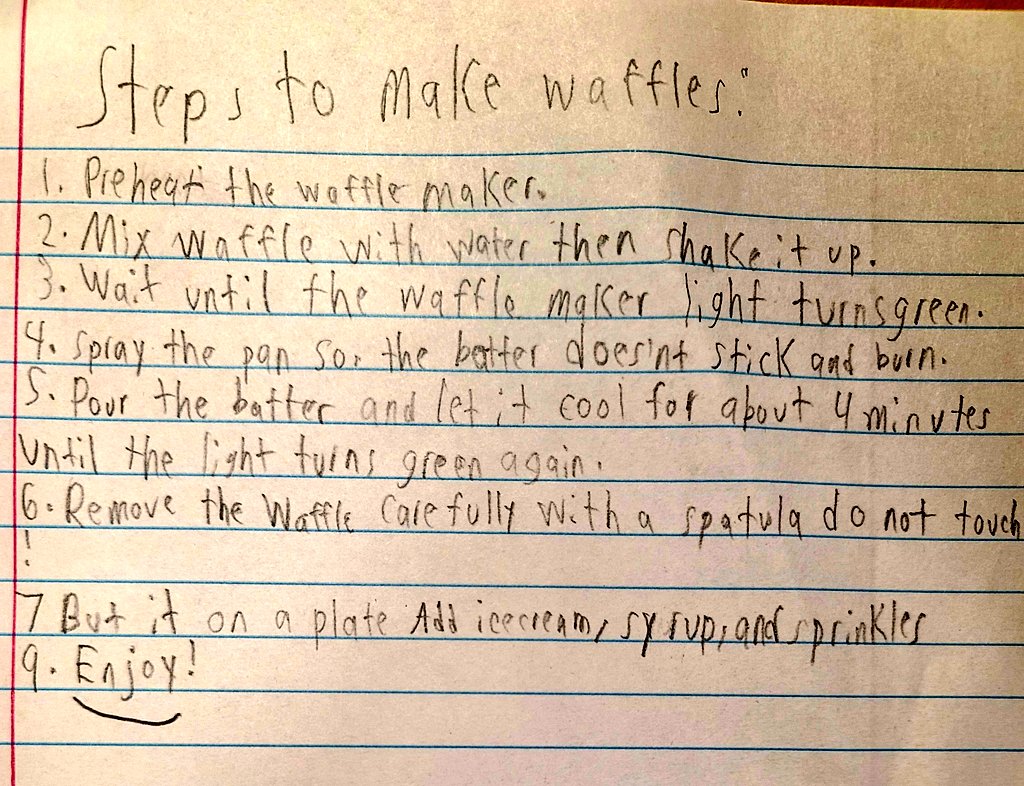 Steps to make waffles:
1. Preheat the waffle maker.
2. Mix waffle with water then shake it up.
3. Wait until the waffle maker light turns green.
4. Spray the pan so. the batter does'nt stick and burn.
5. Pour the batter and let it cool for about 4 minutes
until the light turns green again.
6. Remove the Waffle carefully with a spatula do not touch
!
7 But it on a plate Add icecream, syrup, and sprinkles
9. Enjoy!